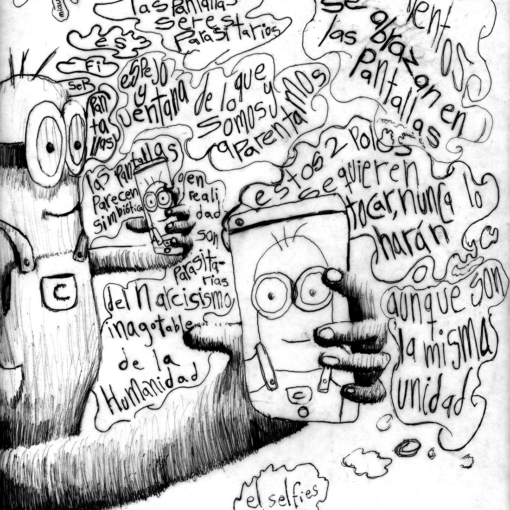 las Pantallas
seres
Parasitarios
se abrazan en
las Pantallas
ESPEJO
y
VENTANA de lo que
Somos y
aParentamos
Ser
Pan
ta
llas
las Pantallas
Parecen
simbiótica
o en
reali
dad
son
Parasita
rias
del narcisismo
inagotable
de la
Humanidad
estos 2 Polos
se quieren
tocar, nunca lo
harán
aunque son
la misma
unidad
C
C
el selfies